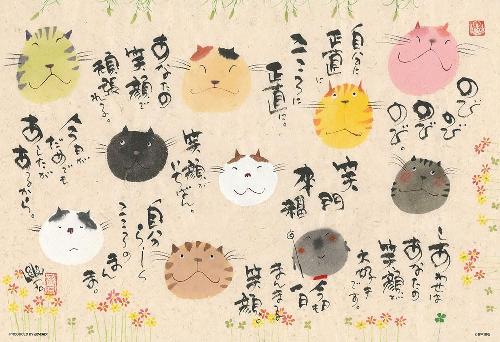 のび
のび
のび
のび
自分に
正直に
こころに
正直に。
あなたの
笑顔で
頑張
れる。
しあわせは
あなたの
笑顔が
大好き
です。
笑門
来福
笑顔が
いちばん。
今日が
だめでも
あしたが
あるから。
今日も
一日
まんまる
笑顔
自分
らしく
こころの
まんま。